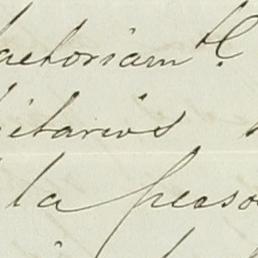 actoriamte
itarios
la perso